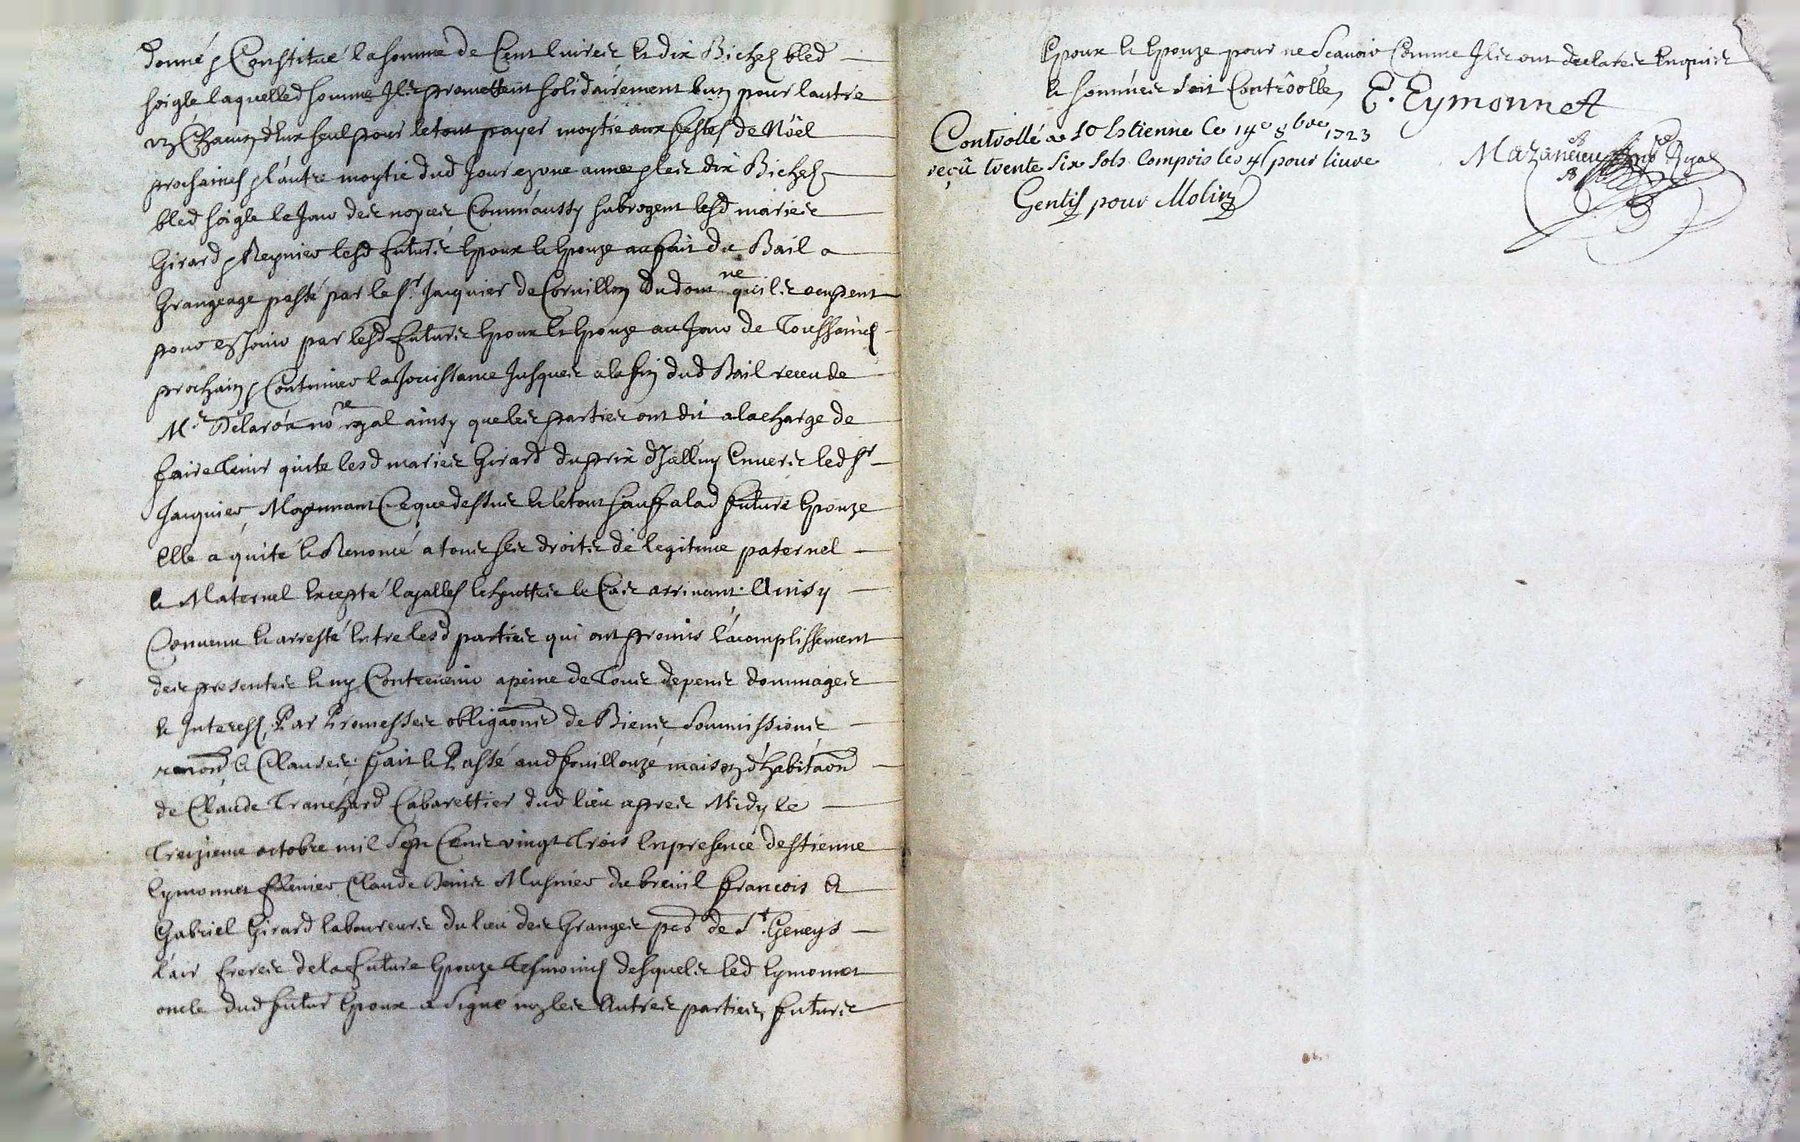 donné & Constitué la somme de Cent livres et dix Bichets bled
soigle laquelled somme Ils promettent solidairement lun pour lautre
un Chacun d'Eux seul pour le tout payer moytie aux festes de Nöel
prochaines & lautre moytie dud Jour en une annee & les dix Bichets
bled soigle le Jour des nopces Comm'aussy subrogent lesd mariés
Girard & Reynier lesd futurs Epoux et Epouze au fait du Bail a
Grangeage passé par le Sr. Jacquier de Cornillon du domne quils ocupent
pour en Jouir par lesd futurs Epoux et Epouze au Jour de Toussaincts
prochain & Continuer la Jouissance Jusques a la fin dud Bail receu de
Mr. Delaroa nore royal ainsy que les parties ont dit a la charge de
faire Tenir quite lesd mariés Girard du prix d'Icelluy Envers led Sr
Jacquier, Moyennant Ce que dessus et le tout sauf a lad future Epouze
Elle a quité et Renoncé a tous ses droits de legitime paternel
et Maternel Excepté loyalles Eschuttes le Cas arrivant. Ainsy
Convenu et arresté Entre lesd parties qui ont promis l'acomplissement
des presentes et ny Contrevenir a peine de Tous depens dommages
et Interests, Par Promesses obligaons de Biens soumissions
renons et Clauses. fait et Passé aud fouillouze maison d'habitaon
de Claude Tranchard Cabarettier dud lieu apres Midy le
Treizieme octobre mil sept Cens vingt Trois En presence d'estienne
Eymonnet Claude Musnier du breuil francois et
Gabriel Girard laboureurs du lieu des Granges psse de St. Geneys
l'air freres de la future Epouze Tesmoins desquels led Eymonnet
oncle dud futur Epoux a Signé non les Autres parties, futurs
Epoux et Epouze pour ne Scavoir Comme Ils ont declaré Enquis
et sommés soit Controollé, E. Eymonnet
Controllé a St Estienne Ce 14e 8bre 1723
reçû trente six sols Compris les 4s pour livre
Mazancieu
Gentil pour Molin